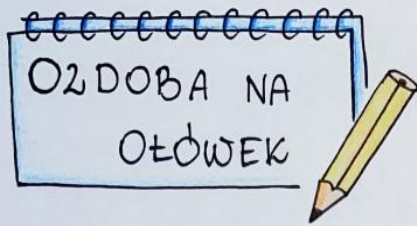 OZDOBA NA
OŁÓWEK